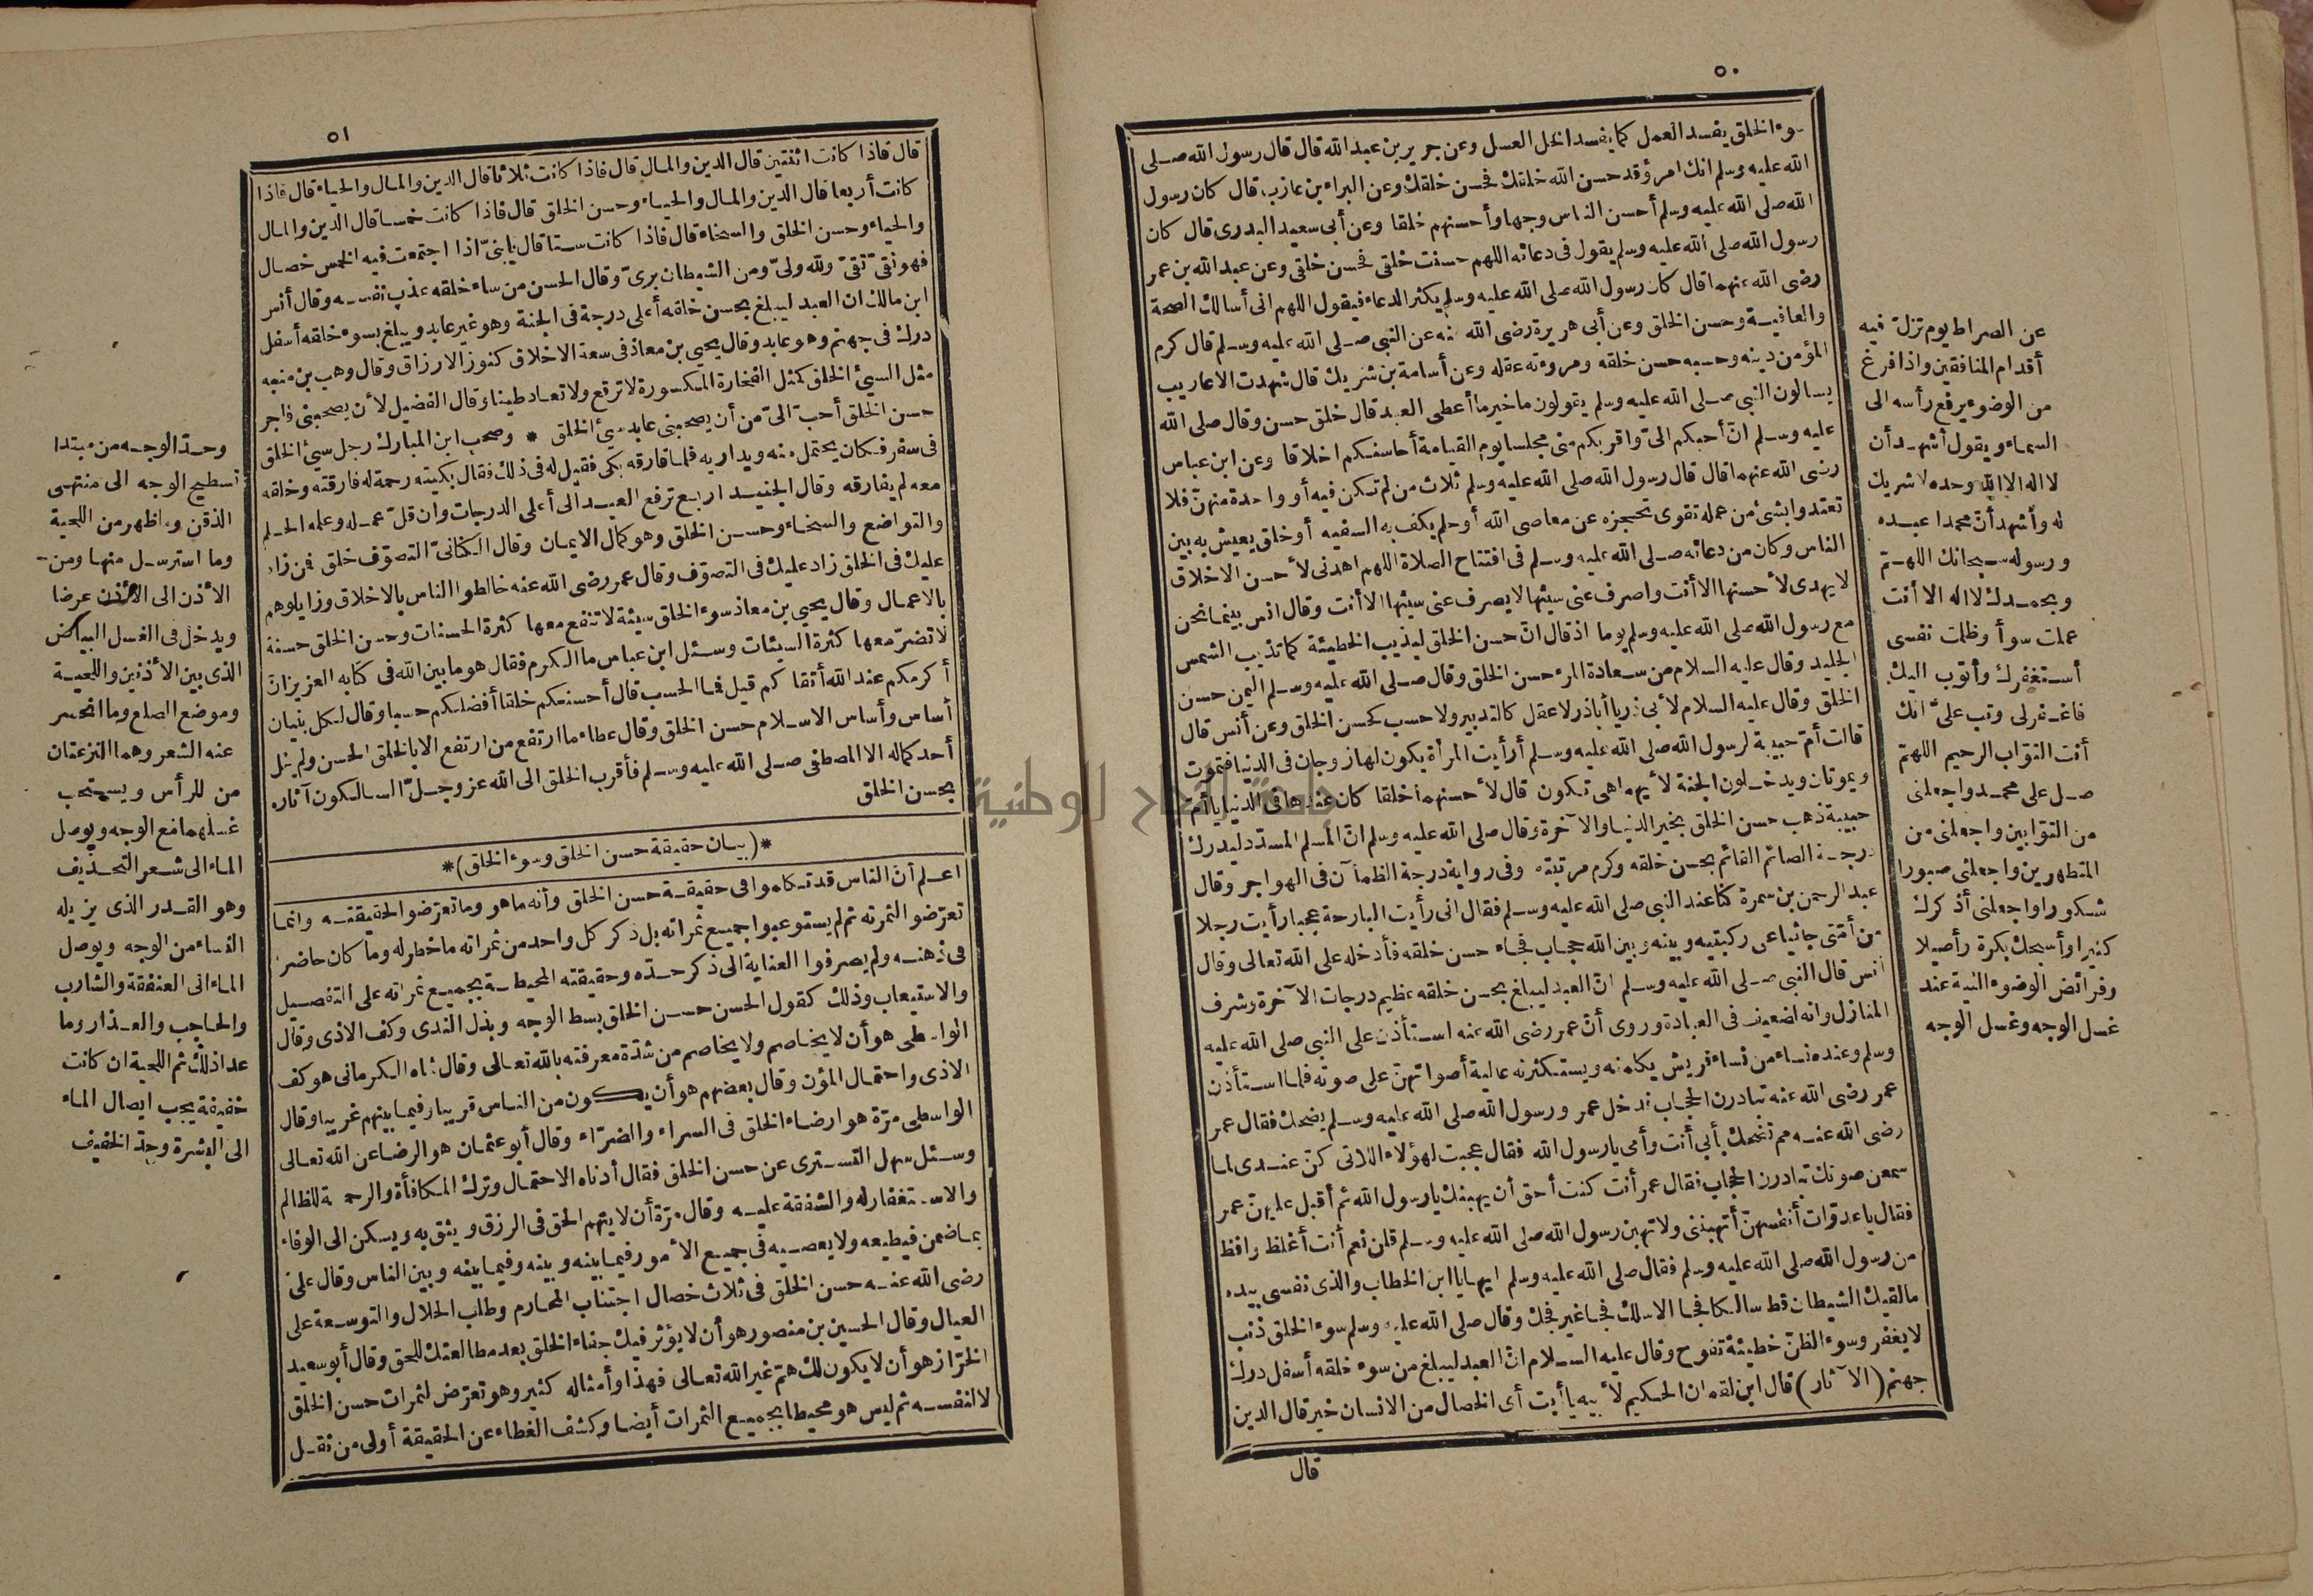 ٥٠
سوء الخلق يفسد العمل كما يفسد الخل العسل وعن جرير بن عبد الله قال قال رسول الله صلى
الله عليه وسلم انك امرؤ قد حسن الله خلقك فحسن خلقك وعن البراء بن عازب قال كان رسول
الله صلى الله عليه وسلم أحسن الناس وجها وأحسنهم خلقا وعن أبى سعيد البدرى قال كان
رسول الله صلى الله عليه وسلم يقول فى دعائه اللهم حسنت خلقى فحسن خلقى وعن عبد الله بن عمر
رضى الله عنهما قال كان رسول الله صلى الله عليه وسلم يكثر الدعاء فيقول اللهم انى أسالك الصحة
والعافية وحسن الخلق وعن أبى هريرة رضى الله عنه عن النبى صلى الله عليه وسلم قال كرم
المؤمن دينه وحسبه حسن خلقه ومروءته عقله وعن أسامة بن شريك قال شهدت الاعاريب
يسالون النبى صلى الله عليه وسلم يقولون ما خير ما أعطى العبد قال خلق حسن وقال صلى الله
عليه وسلم انّ أحبكم الىّ واقربكم منى مجلسا يوم القيامة أحاسنكم اخلاقا وعن ابن عباس
رضى الله عنهما قال قال رسول الله صلى الله عليه وسلم ثلاث من لم تكن فيه أو واحدة منهنّ فلا
تعتدوا بشئ من عمله تقوى تحجزه عن معاصى الله أو حلم يكف به السفيه أو خلق يعيش به بين
الناس وكان من دعائه صلى الله عليه وسلم فى افتتاح الصلاة اللهم اهدنى لأحسن الاخلاق
لا يهدى لأحسنها الا أنت واصرف عنى سيئها لا يصرف عنى سيئها الا أنت وقال انس بينما نحن
مع رسول الله صلى الله عليه وسلم يوما اذ قال انّ حسن الخلق ليذيب الخطيئة كما تذيب الشمس
الجليد وقال عليه السلام من سعادة المرء حسن الخلق وقال صلى الله عليه وسلم اليمن حسن
الخلق وقال عليه السلام لأبى ذر يا أباذر لا عقل كالتدبير ولا حسب كحسن الخلق وعن أنس قال
قالت أمّ حبيبة لرسول الله صلى الله عليه وسلم أرأيت المرأة يكون لها زوجان فى الدنيا فتموت
ويموتان ويدخلون الجنة لأيهما هى تكون قال لأحسنهما خلقا كان عندها فى الدنيا يا أم
حبيبة ذهب حسن الخلق بخير الدنيا والآخرة وقال صلى الله عليه وسلم انّ المسلم المسدد ليدرك
درجة الصائم القائم بحسن خلقه وكرم مرتبته وفى رواية درجة الظمآن فى الهواجر وقال
عبد الرحمن بن سمرة كنا عند النبى صلى الله عليه وسلم فقال انى رأيت البارحة عجبا رأيت رجلا
من أمتى جاثيا على ركبتيه وبينه وبين الله حجاب فجاء حسن خلقه فأدخله على الله تعالى وقال
أنس قال النبى صلى الله عليه وسلم انّ العبد ليبلغ بحسن خلقه عظيم درجات الآخرة وشرف
المنازل وانه لضعيف فى العبادة وروى أنّ عمر رضى الله عنه استأذن على النبى صلى الله عليه
وسلم وعنده نساء من نساء قريش يكلمنه ويستكثرنه عالية أصواتهنّ على صوته فلما استأذن
عمر رضى الله عنه تبادرن الحجاب فدخل عمر ورسول الله صلى الله عليه وسلم يضحك فقال عمر
رضى الله عنه مم تضحك بأبى أنت وأمى يا رسول الله فقال عجبت لهؤلاء اللاتى كنّ عندى لما
سمعن صوتك تبادرن الحجاب فقال عمر أنت كنت أحق أن يهبنك يا رسول الله ثم أقبل عليهنّ عمر
فقال يا عدوّات أنفسهنّ أتهبننى ولا تهبن رسول الله صلى الله عليه وسلم قلن نعم أنت أغلظ وافظ
من رسول الله صلى الله عليه وسلم فقال صلى الله عليه وسلم ايها يا ابن الخطاب والذى نفسى بيده
ما لقيك الشيطان قط سالكا فجا الا سلك فجا غير فجك وقال صلى الله عليه وسلم سوء الخلق ذنب
لا يغفر وسوء الظنّ خطيئة تفوح وقال عليه السلام انّ العبد ليبلغ من سوء خلقه أسفل درك
جهنم (الآثار) قال ابن لقمان الحكيم لأبيه يا أبت أى الخصال من الانسان خير قال الدين
قال
عن الصراط يوم تزلّ فيه
أقدام المنافقين واذا فرغ
من الوضوء يرفع رأسه الى
السماء ويقول أشهد أن
لا اله الا الله وحده لا شريك
له وأشهد أنّ محمدا عبده
ورسوله سبحانك اللهمّ
وبحمدك لا اله الا أنت
عملت سوأ وظلمت نفسى
أستغفرك وأتوب اليك
فاغفر لى وتب علىّ انك
أنت التواب الرحيم اللهمّ
صل على محمد واجعلنى
من التوابين واجعلنى من
المتطهرين واجعلنى صبورا
شكورا واجعلنى أذكرك
كثيرا وأسبحك بكرة وأصيلا
وفرائض الوضوء النية عند
غسل الوجه وغسل الوجه
٥١
قال فاذا كانت اثنتين قال الدين والمال قال فاذا كانت ثلاثا قال الدين والمال والحياء قال فاذا
كانت أربعا قال الدين والمال والحياء وحسن الخلق قال فاذا كانت خمسا قال الدين والمال
والحياء وحسن الخلق والسخاء قال فاذا كانت ستا قال يا بنىّ اذا اجتمعت فيه الخمس خصال
فهو نقىّ تقىّ ولله ولىّ ومن الشيطان برىّ وقال الحسن من ساء خلقه عذب نفسه وقال أنس
ابن مالك ان العبد ليبلغ بحسن خلقه أعلى درجة فى الجنة وهو غير عابد ويبلغ بسوء خلقه أسفل
درك فى جهنم وهو عابد وقال يحيى بن معاذ فى سعة الاخلاق كنوز الارزاق وقال وهب بن منبه
مثل السيئ الخلق كمثل الفخارة المكسورة لا ترقع ولا تعاد طينا وقال الفضيل لأن يصحبنى فاجر
حسن الخلق أحبّ الىّ من أن يصحبنى عابد سيئ الخلق * وصحب ابن المبارك رجل سيئ الخلق
فى سفر فكان يحتمل منه ويداريه فلما فارقه بكى فقيل له فى ذلك فقال بكيته رحمة له فارقته وخلقه
معه لم يفارقه وقال الجنيد اربع ترفع العبد الى أعلى الدرجات وان قلّ عمله وعلمه الحلم
والتواضع والسخاء وحسن الخلق وهو كمال الايمان وقال الكتانىّ التصوّف خلق فمن زاد
عليك فى الخلق زاد عليك فى التصوّف وقال عمر رضى الله عنه خالطوا الناس بالاخلاق وزايلوهم
بالاعمال وقال يحيى بن معاذ سوء الخلق سيئة لا تنفع معها كثرة الحسنات وحسن الخلق حسنة
لا تضرّ معها كثرة السيئات وسئل ابن عباس ما الكرم فقال هو ما بين الله فى كتابه العزيز انّ
أكرمكم عند الله أتقاكم قيل فما الحسب قال أحسنكم خلقا أفضلكم حسبا وقال لكل بنيان
أساس وأساس الاسلام حسن الخلق وقال عطاء ما ارتفع من ارتفع الا بالخلق الحسن ولم ينل
أحد كماله الا المصطفى صلى الله عليه وسلم فأقرب الخلق الى الله عز وجلّ السالكون آثاره
بحسن الخلق
*(بيان حقيقة حسن الخلق وسوء الخلق)*
اعلم أن الناس قد تكلموا فى حقيقة حسن الخلق وأنه ما هو وما تعرّضوا لحقيقته وانما
تعرّضوا لثمرته ثم لم يستوعبوا جميع ثمراته بل ذكر كل واحد من ثمراته ما خطر له وما كان حاضرا
فى ذهنه ولم يصرفوا العناية الى ذكر حدّه وحقيقته المحيطة بجميع ثمراته على التفصيل
والاستيعاب وذلك كقول الحسن حسن الخلق بسط الوجه وبذل الندى وكف الاذى وقال
الواسطى هو أن لا يخاصم ولا يخاصم من شدّة معرفته بالله تعالى وقال شاه الكرمانى هو كف
الاذى واحتمال المؤن وقال بعضهم هو أن يكون من الناس قريبا وفيما بينهم غريبا وقال
الواسطى مرّة هو ارضاء الخلق فى السراء والضرّاء وقال أبو عثمان هو الرضا عن الله تعالى
وسئل سهل التسترى عن حسن الخلق فقال أدناه الاحتمال وترك المكافأة والرحمة للظالم
والاستغفار له والشفقة عليه وقال مرّة أن لا يتهم الحق فى الرزق ويثق به ويسكن الى الوفاء
بما ضمن فيطيعه ولا يعصيه فى جميع الأمور فيما بينه وبينه وفيما بينه وبين الناس وقال علىّ
رضى الله عنه حسن الخلق فى ثلاث خصال اجتناب المحارم وطلب الحلال والتوسعة على
العيال وقال الحسين بن منصور هو أن لا يؤثر فيك جفاء الخلق بعد مطالعتك للحق وقال أبو سعيد
الخرّاز هو أن لا يكون لك همّ غير الله تعالى فهذا وأمثاله كثير وهو تعرّض لثمرات حسن الخلق
لا لنفسه ثم ليس هو محيطا بجميع الثمرات أيضا وكشف الغطاء عن الحقيقة أولى من نقل
وحدّ الوجه من مبتدا
تسطيح الوجه الى منتهى
الذقن وما ظهر من اللحية
وما استرسل منها ومن
الأذن الى الأذن عرضا
ويدخل فى الغسل البياض
الذى بين الأذنين واللحية
وموضع الصلع وما انحسر
عنه الشعر وهما النزعتان
من الرأس ويستحب
غسلهما مع الوجه ويوصل
الماء الى شعر التحذيف
وهو القدر الذى يزيله
النساء من الوجه ويوصل
الماء الى العنفقة والشارب
والحاجب والعذار وما
عدا ذلك ثم اللحية ان كانت
خفيفة يجب ايصال الماء
الى البشرة وحدّ الخفيف
جامعة النجاح الوطنية